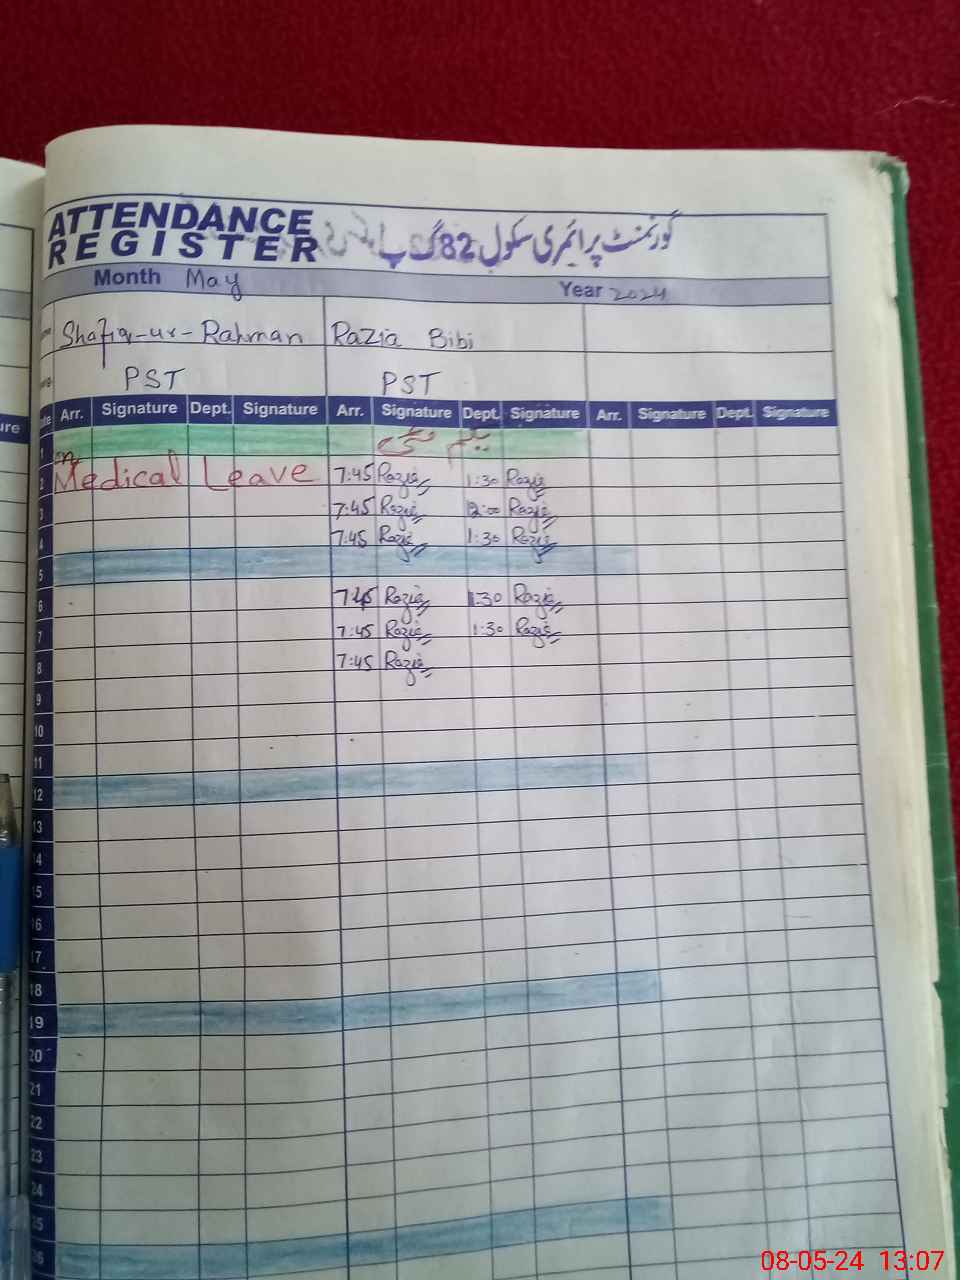 ATTENDANCE
REGISTER
گورنمنٹ پرائمری سکول 82 گ ب
Month May Year 2024
Shafiq-ur-Rahman Razia Bibi
PST PST
Arr. Signature Dept. Signature Arr. Signature Dept. Signature Arr. Signature Dept. Signature
1 یکم مئی
2 on Medical Leave 7:45 Razia 1:30 Razia
3 7:45 Razia 12:00 Razia
4 7:45 Razia 1:30 Razia
5
6 7:45 Razia 1:30 Razia
7 7:45 Razia 1:30 Razia
8 7:45 Razia
9
10
11
12
13
14
15
16
17
18
19
20
21
22
23
24
25
26
08-05-24 13:07